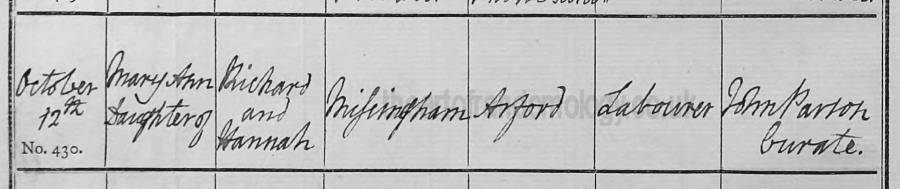 October
12th
No. 430.
Mary Ann
Daughter of
Richard
and
Hannah
Missingham
Arford
Labourer
John Parson
Curate.